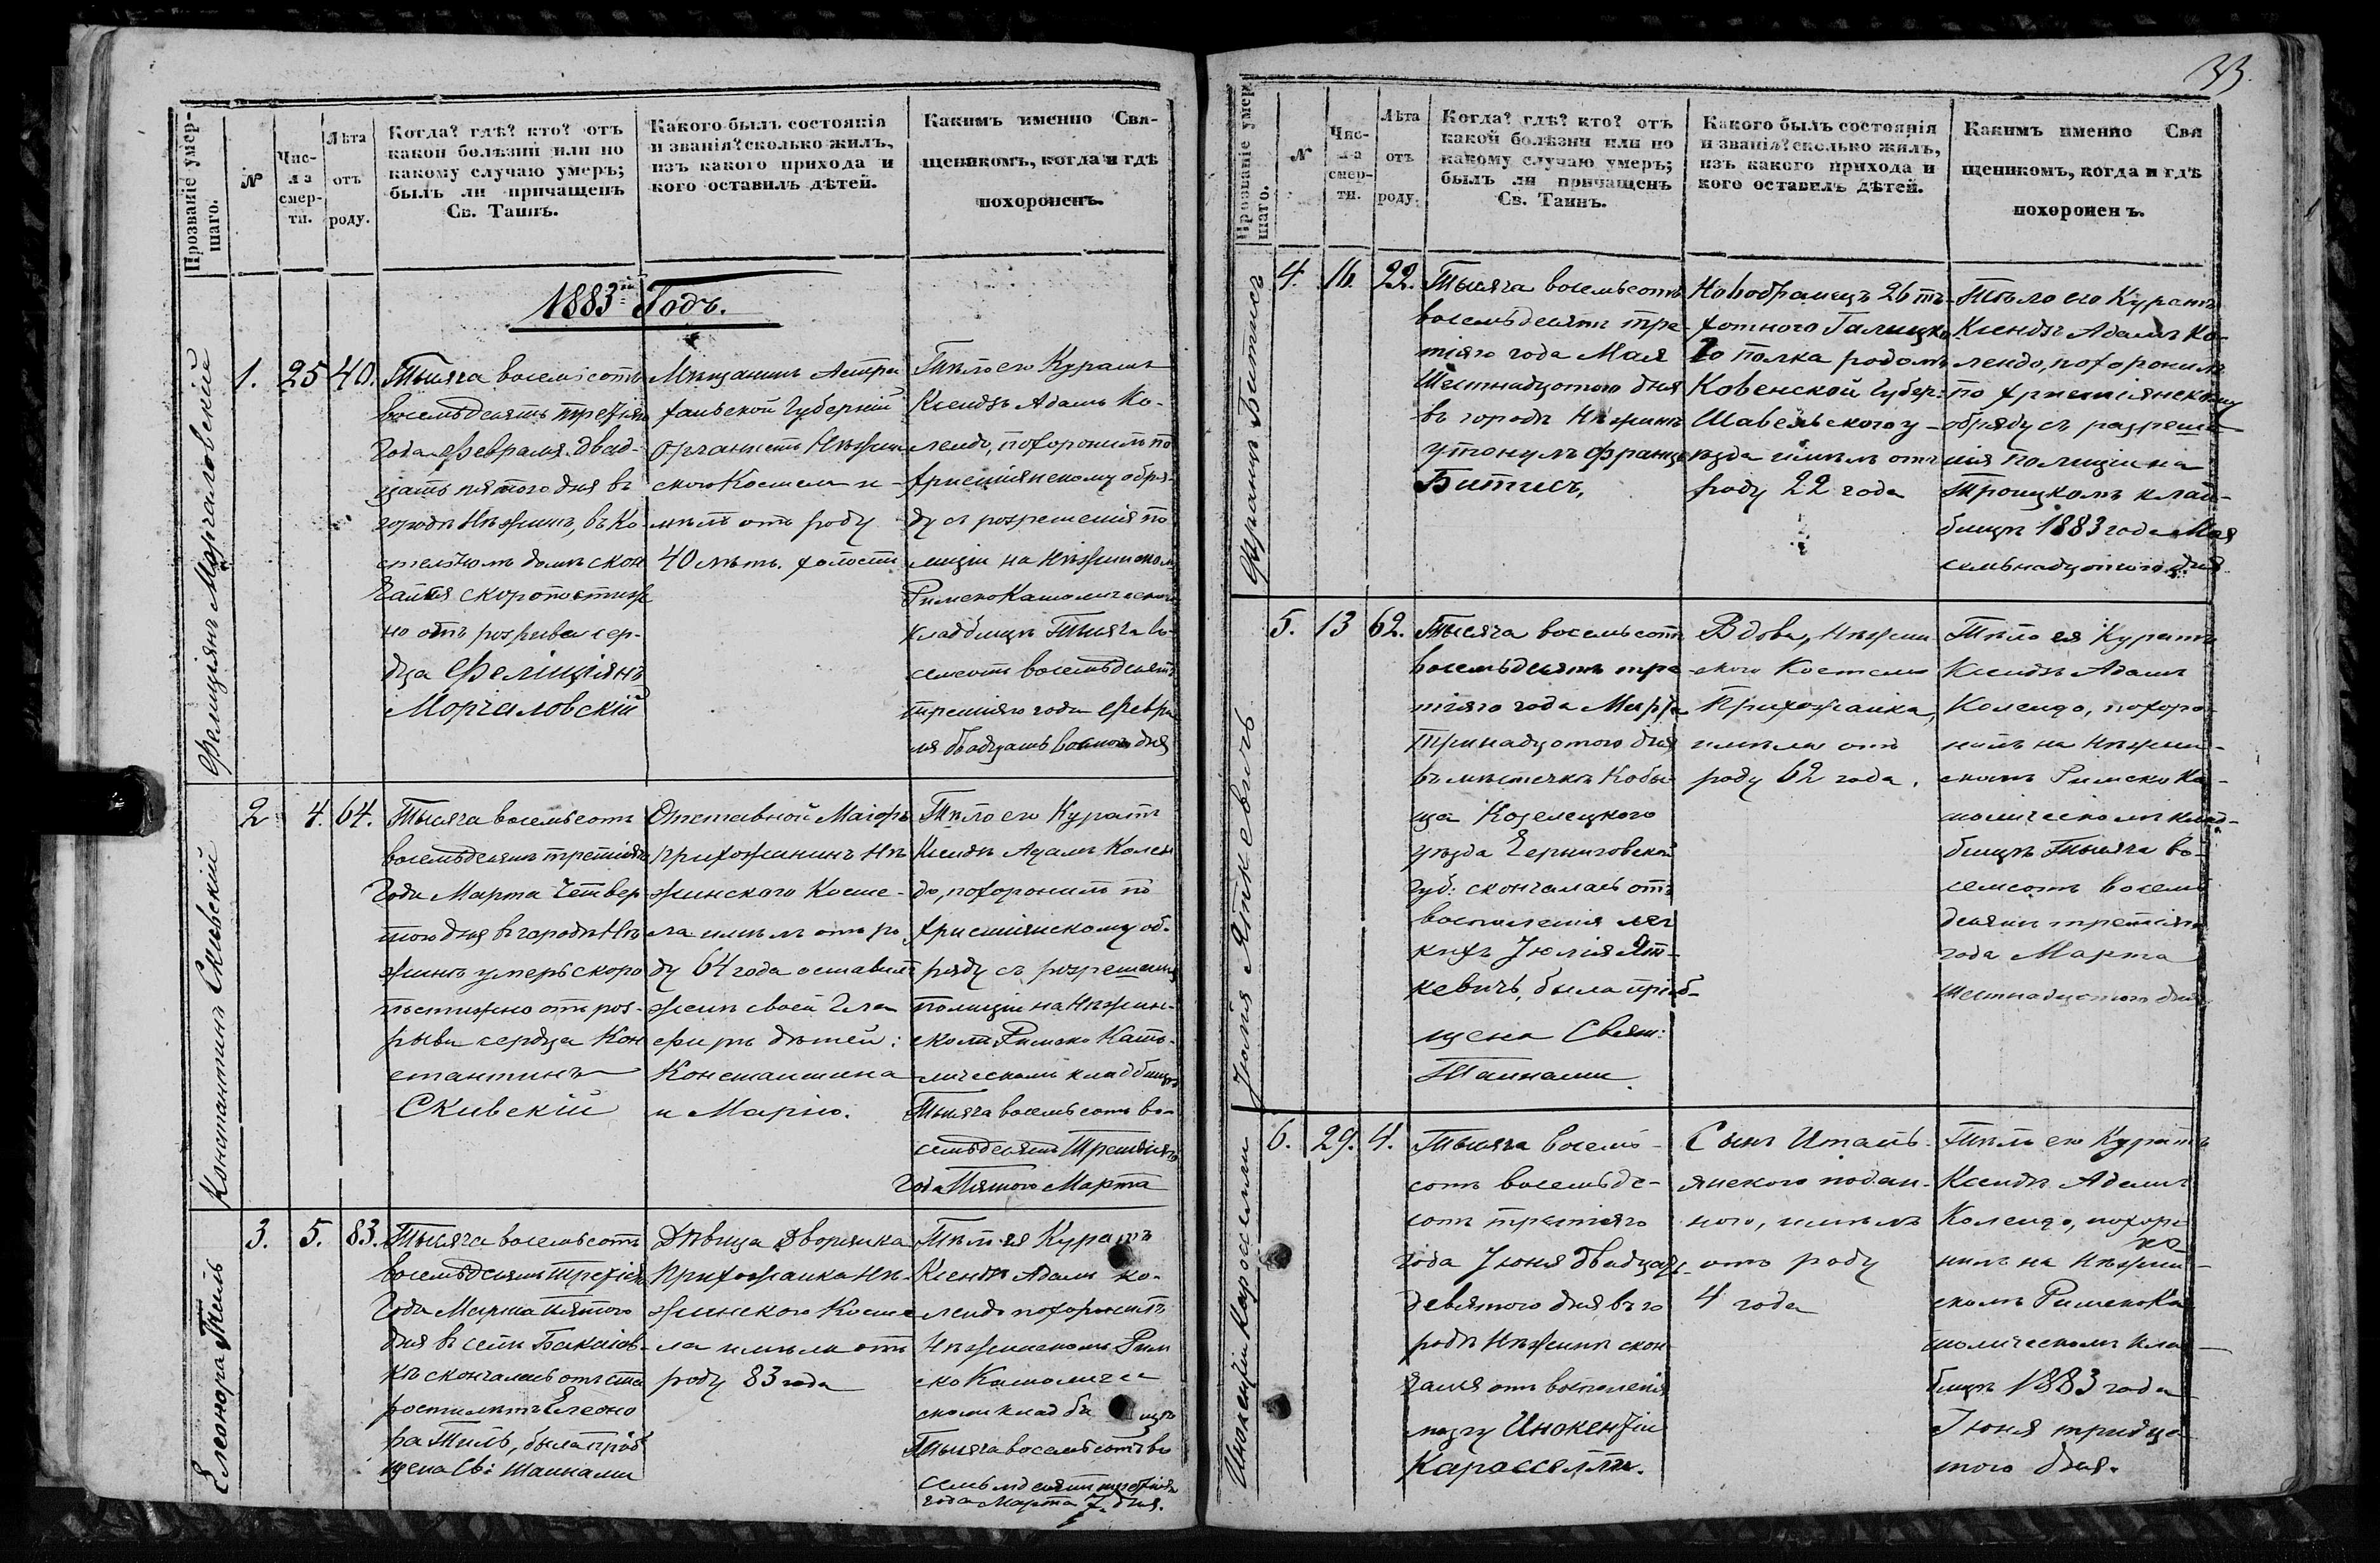 33.
Прозваніе умер-
шаго.
№
Чис-
ла
смер-
ти.
Лѣта
отъ
роду.
Когда? гдѣ? кто? отъ
какой болѣзни или по
какому случаю умеръ;
былъ ли причащенъ
Св. Таинъ.
Какого былъ состоянія
и званія? сколько жилъ,
изъ какого прихода и
кого оставилъ дѣтей.
Какимъ именно Свя-
щеникомъ, когда и гдѣ
похороненъ.
1883й Годъ.
Фелиціянъ Моргаловскій
1.
25
40.
Тысяча восемьсотъ
восемьдесятъ третяго
года Февраля двад-
цать пятого дня въ
городѣ Нѣжинѣ, въ Ко
стельномъ домѣ скон
чался скоропостиж
но отъ розрыва сер-
дца Фелиціянъ
Моргаловскій
Мѣщанинъ Астра
ханьской Губерній
Органистъ Нѣжин
ского Костела и-
мѣлъ отъ роду
40 лѣтъ. холостъ
Тѣло его Куратъ
Ксендзъ Адамъ Ко-
лендо, похоронилъ по
христіянскому обря-
ду съ розрешенія по
лиціи на Нѣжинском
Римско Католическом
кладбищѣ Тысяча во-
семсотъ восемьдесятъ
третіяго года Февра
ля двадцать восмого дня
Константинъ Скивскій
2
4.
64.
Тысяча восемьсотъ
восемьдесятъ третіяго
Года Марта Четвер
того дня въ городѣ Нѣ
жинѣ умеръ скоро
постижно отъ роз-
рыва сердца Кон
стантинъ
Скивскій
Отставной Маіоръ
прихожанинъ Нѣ
жинского Косте-
ла имѣлъ отъ ро
ду 64 года оставилъ
женѣ своей Гла
фирѣ дѣтей:
Константина
и Марію.
Тѣло его Куратъ
Ксендзъ Адамъ Колен
до, похоронилъ по
христіянскому об-
ряду съ розрешенія
полиціи на Нѣжин-
скомъ Римско Като-
лическомъ кладбищѣ
Тысяча восемьсотъ во-
семьдесятъ Третіяго
Года Пятого Марта
Елеонора Тиль
3.
5.
83.
Тысяча восемьсотъ
восемьдесятъ третіяго
Года Марта пятого
дня въ селѣ Бакаіов-
кѣ скончалась отъ ста
рости лѣтъ Елеоно
ра Тиль, была пріоб
щена Св: Таинами
Дѣвица Дворянка
Прихожанка Нѣ-
жинского Косте
ла имѣла отъ
роду 83 года
Тѣло ея Куратъ
Ксендзъ Адамъ Ко-
лендо похоронилъ
Нѣжинскомъ Рим
ско Католиче
скомъ кладбищѣ
Тысяча восемьсотъ во
семьмдесятъ третіяго
года Марта 7. дня.
Прозваніе умер
шаго.
№
Чис-
ла
смер-
ти.
Лѣта
отъ
роду.
Когда? гдѣ? кто? отъ
какой болѣзни или по
какому случаю умеръ;
былъ ли причащенъ
Св. Таинъ.
Какого былъ состоянія
и званія? сколько жилъ,
изъ какого прихода и
кого оставилъ дѣтей.
Какимъ именно Свя
щеникомъ, когда и гдѣ
похороненъ.
Францъ Битисъ
4.
16.
22.
Тысяча восемьсотъ
восемьдесятъ тре-
тіяго года Мая
Шестнадцотого дня
въ городѣ Нѣжинѣ
утонулъ Францъ
Битисъ,
Новобранецъ 26 пѣ-
хотного Галицко
го полка родомъ
Ковенской Губер:
Шавельского у-
ѣзда имѣлъ отъ
роду 22 года
Тѣло его Куратъ
Ксендзъ Адамъ Ко-
лендо, похоронилъ
по христіянскому
обряду съ разреше-
нія Полиціи на
Троицкомъ клад-
бищѣ 1883 года Мая
семьнадцотого дня
Юлія Яткевичъ
5.
13
62.
Тысяча восемьсотъ
восемьдесятъ тре
тіяго года Марта
Тринадцотого дня
въ мѣстечкѣ Кобы
ща Козелецкого
уѣзда Черниговской
Губ: скончалась отъ
воспаленія лег
кихъ Юлія Ят-
кевичъ, была пріоб-
щена Свят:
Таинами.
Вдова, Нѣжин
ского Костела
Прихожанка,
имѣла отъ
роду 62 года.
Тѣло ея Куратъ
Ксендзъ Адамъ
Колендо, похоро-
нилъ на Нѣжин-
скомъ Римско Ка-
толическомъ клад-
бищѣ Тысяча во-
семсотъ восемь
десятъ третіяго
года Марта
Шестнадцотого дня
Инокентій Каросселли
6.
29.
4.
Тысяча восемь-
сотъ восемьде-
сотъ третіяго
года Іюня двадцать
девятого дня въ го
родѣ Нѣжинѣ скон
чался отъ восполенія
мозгу Инокентій
Каросселли.
Сынъ Италь-
янского подан-
ного, имѣлъ
отъ роду
4 года
Тѣло его Куратъ
Ксендзъ Адамъ
Колендо, похоро
нилъ на Нѣжин-
скомъ Римско Ка
толическомъ клад-
бищѣ 1883 года
Іюня тридца
того дня.